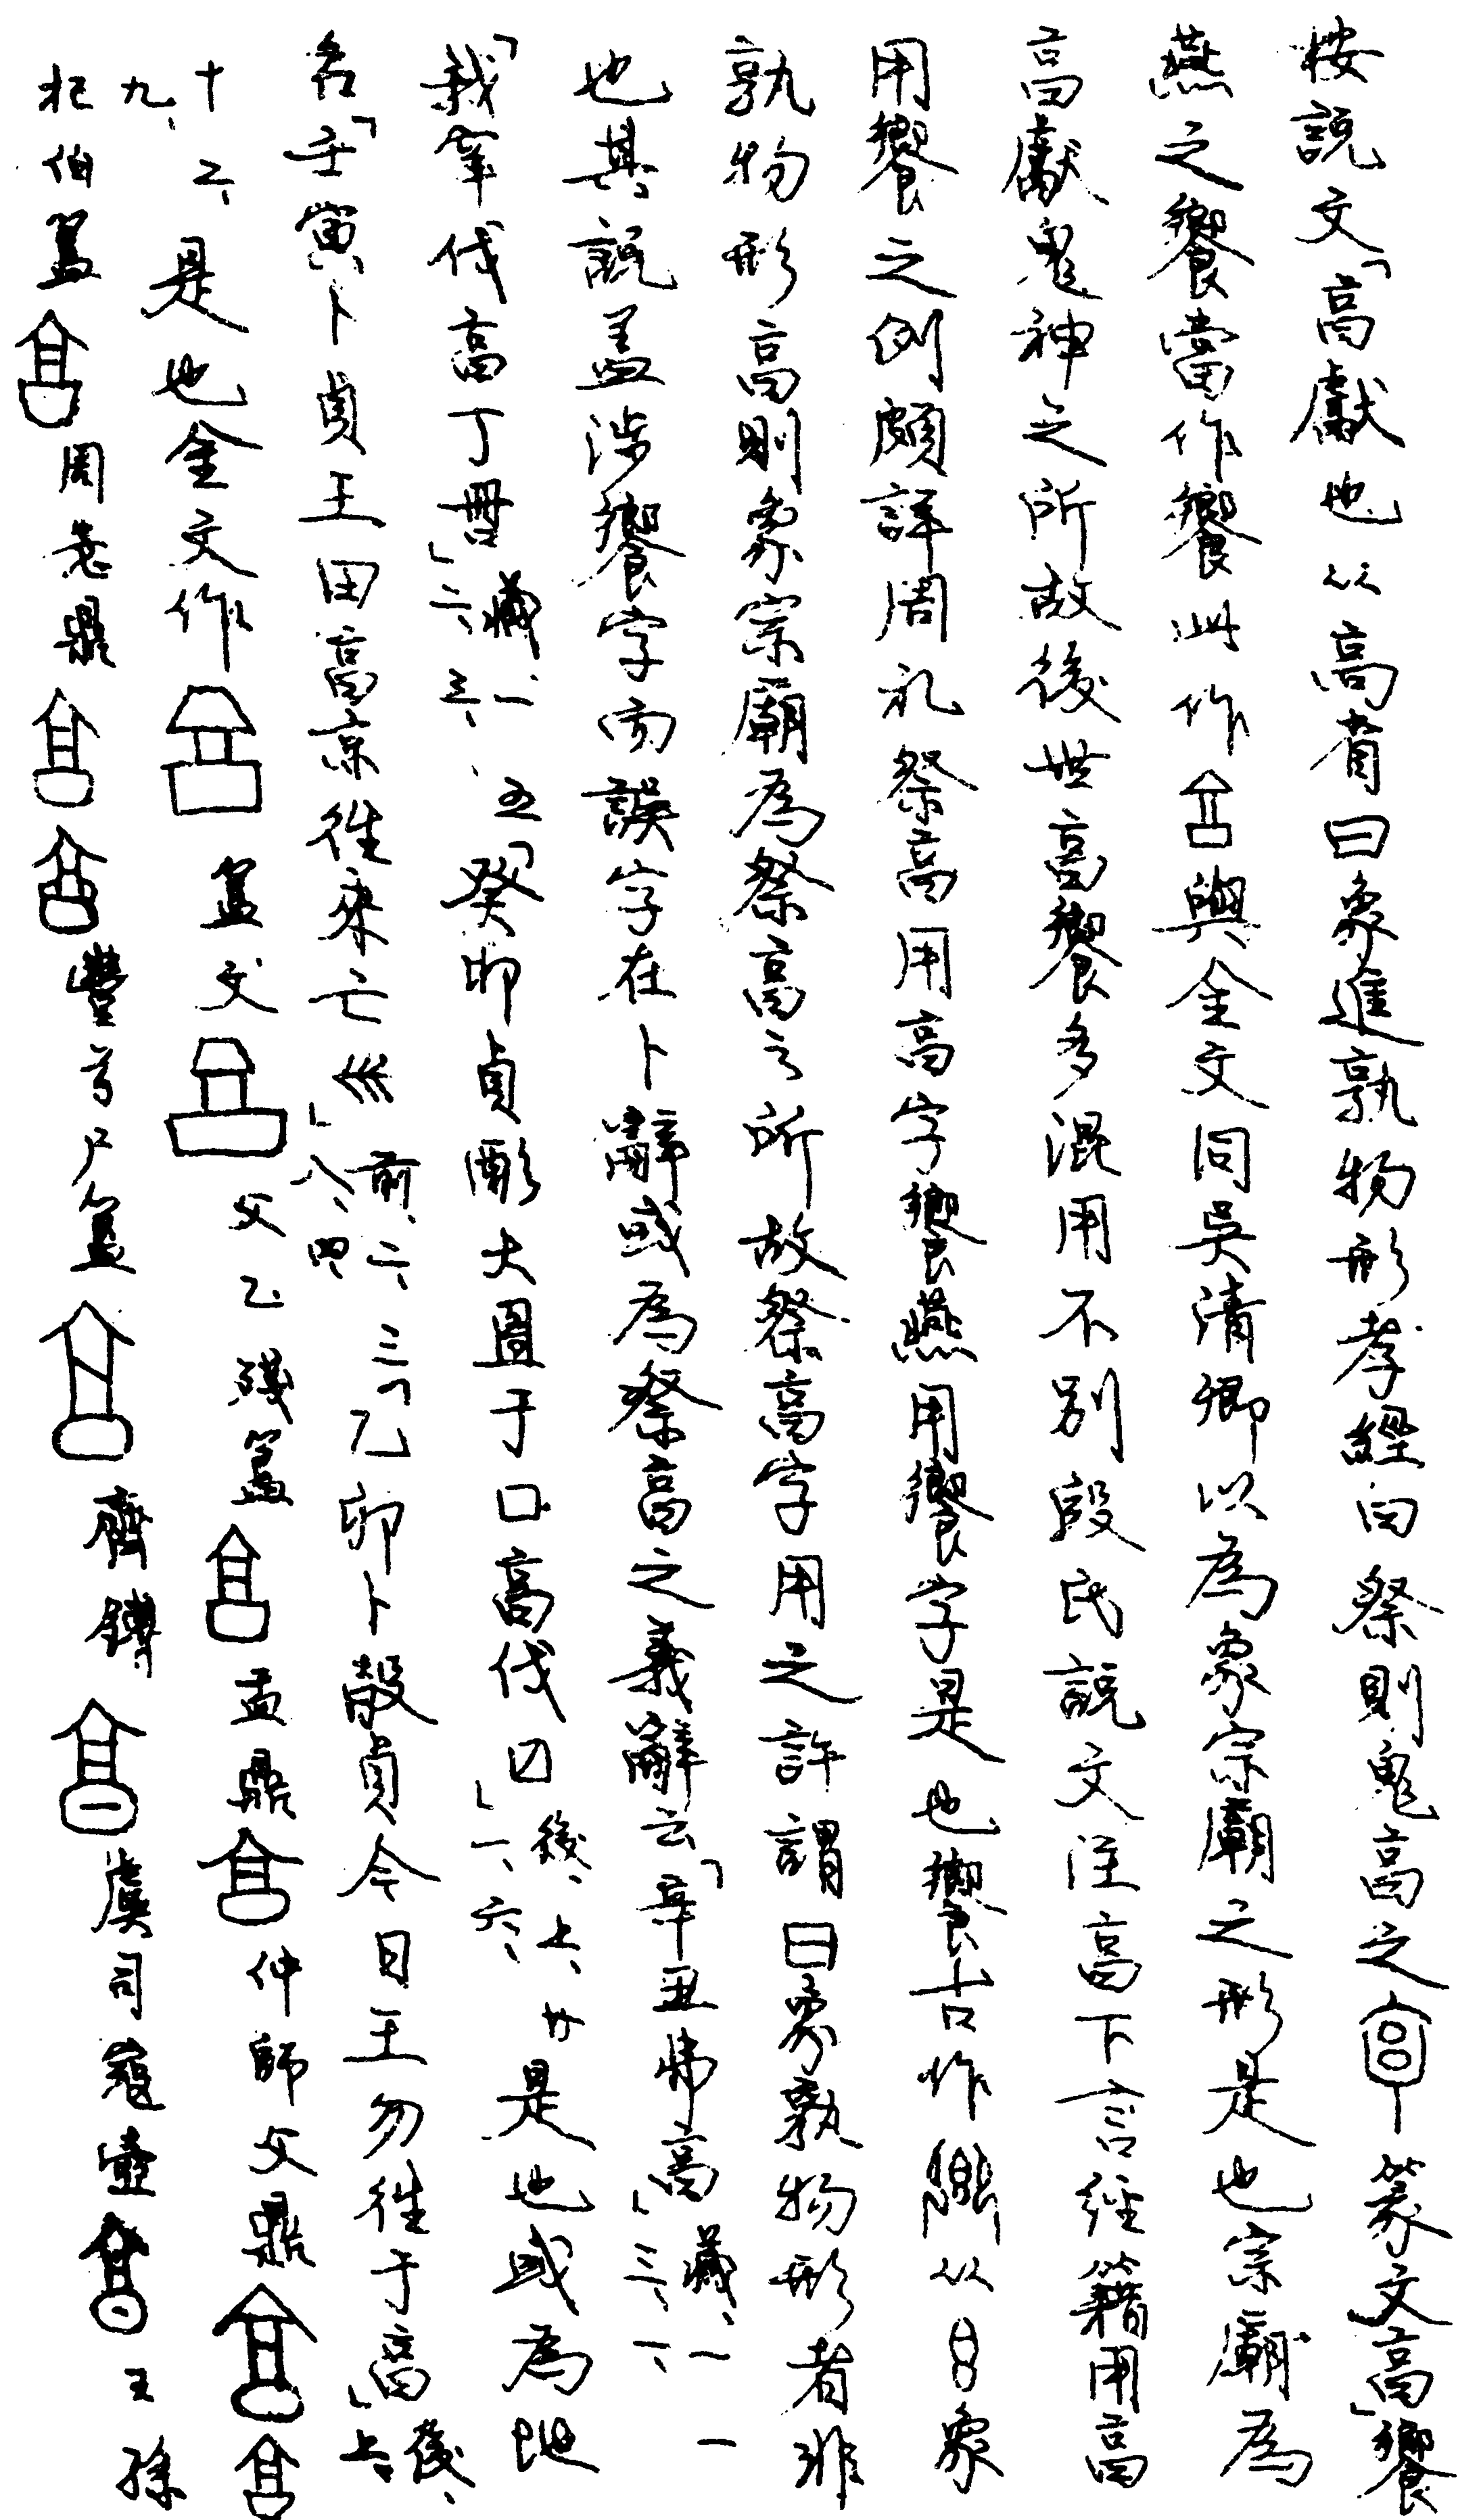 按說文「亯獻也从高省曰象進孰物形孝經曰祭則鬼亯之篆文亯」饗
燕之饗當作饗此作與金文同吳清卿以為象宗廟之形是也宗廟為
亯獻鬼神之所故後世亯饗多混用不別段氏說文注亯下言經籍用亯
用饗之例頗詳周礼祭亯用亯字饗燕用饗字是也饗古作从皀象
孰物形亯則象宗廟為祭亯之所故祭亯字用之許謂曰象孰物形者非
也其說盖涉饗字而誤字在卜辭或為祭亯之義辭云「辛丑帚亯」藏、一一三、一、
「我宰伐亯丁豊」藏、一五二、三、「癸卯貞酌大圂于囗亯伐囗」後、上、廿一、六、是也或為地
名「壬寅卜貞王田亯京徃來亡巛」前、二、三八、四、「乙卯卜㱿貞今日王勿徃于亯」後、上、
十九、六、是也金文作簋文父乙殘簋盂鼎仲師父鼎
杞伯簋周悆鼎豐兮尸簋齊鎛虞司寇壺王孫